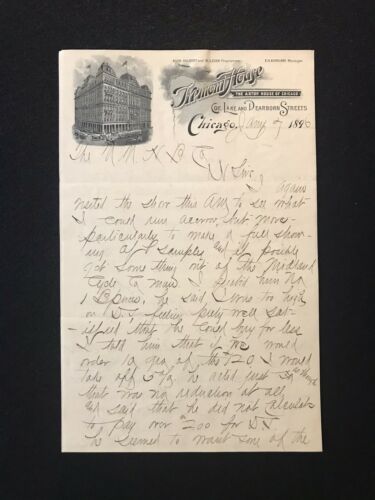 Tremont House
THE ASTOR HOUSE OF CHICAGO
Cor. Lake and Dearborn Streets
Chicago, Jany 7 189
The
Again
visited the show this AM to see what
I could run across, but more
particularly to make a full show-
ing of samples and if possible
get some thing out of the Midland
Cycle Co man I quoted him No
1 he said I was too high
on D.T. feeling pretty well sat-
isfied that he could buy for less
I told him that if we would
order 10 gro of the #20 I would
take off 5% he acted just as though
that was no reduction at all
and said that he did not calculate
to pay over 200 for D.T.
he seemed to want some of the